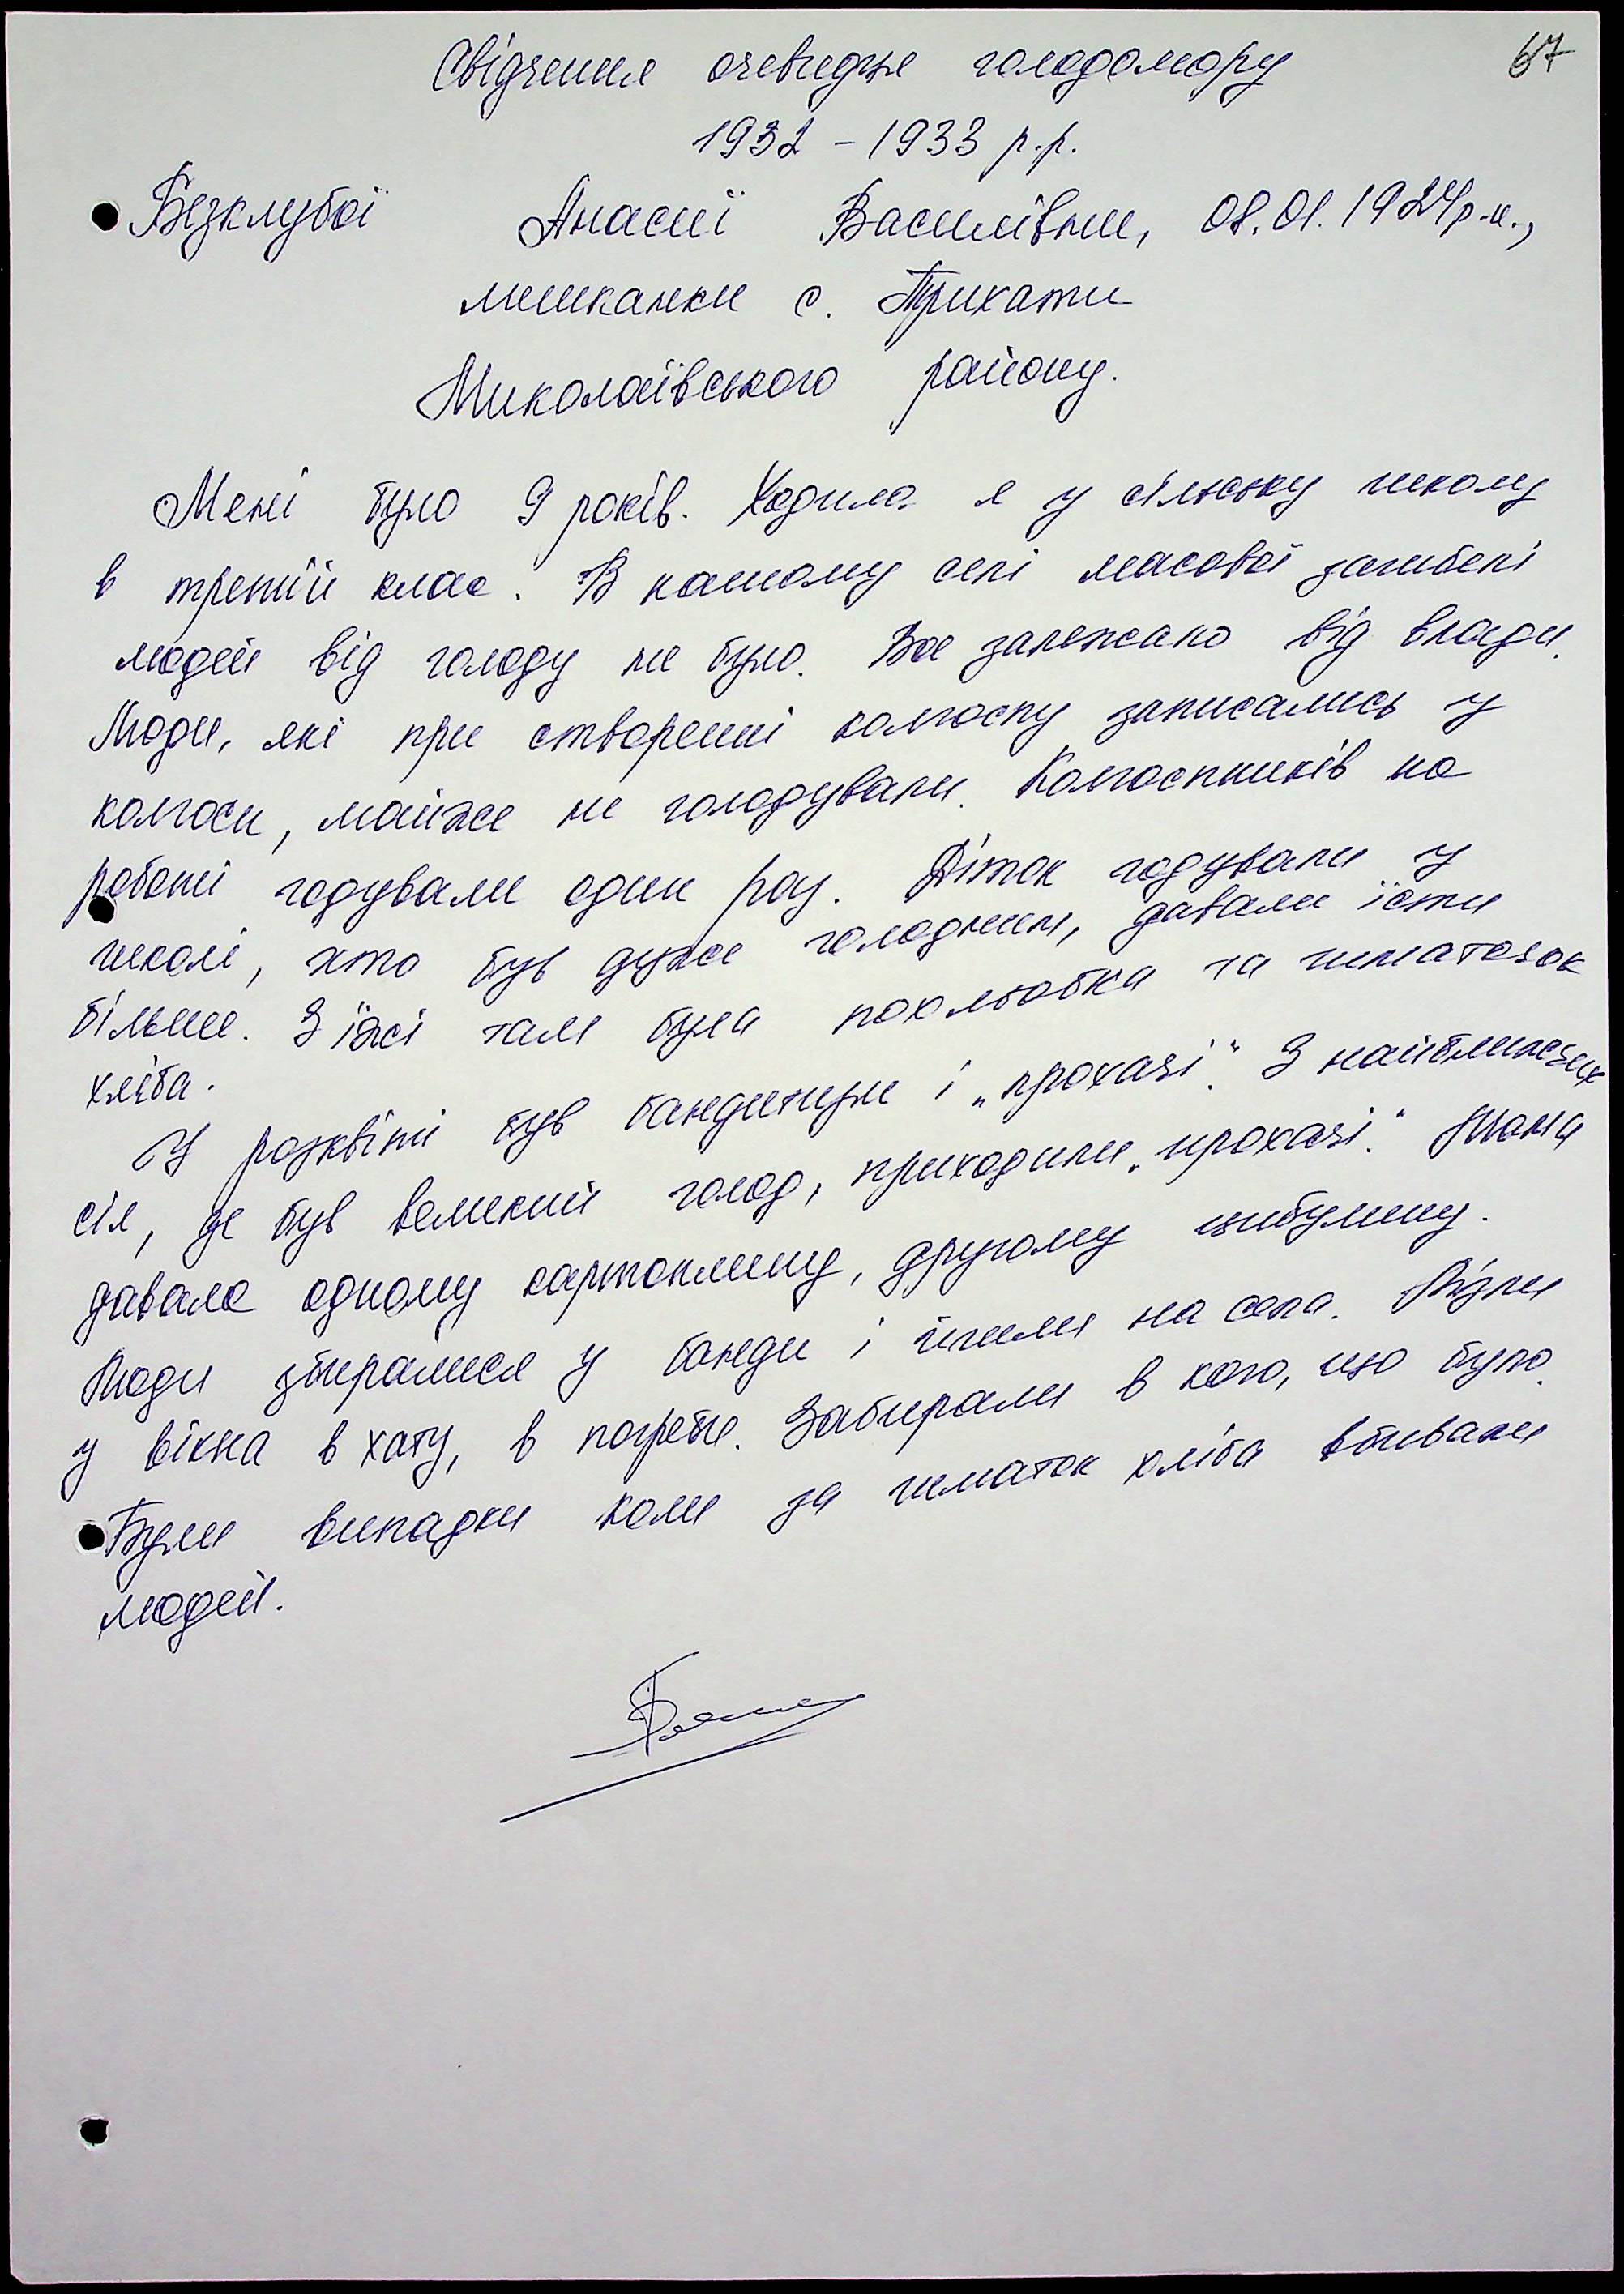 67
Свідчення очевидця голодомору
1932 - 1933 р.р.
Безклубої Анасиї Василівни, 08.01.1924р.н.,
мешканки с. Трихати
Миколаївського району.
Мені було 9 років. Ходила я у сільську школу
в третій клас. В нашому селі масової загибелі
людей від голоду не було. Все залежало від влади.
Люди, які при створенні колгоспу записались у
колгосп, майже не голодували. Колгоспників на
роботі годували один раз. Діток годували у
школі, хто був дуже голодним, давали їсти
більше. З їжі там була похльобка та шматочок
хліба.
У розквіті був бандитизм і „прохачі". З найближчих
сіл, де був великий голод, приходили „прохачі". Мама
давала одному картоплину, другому цибулину.
Люди збиралися у банди і йшли на села. Лізли
у вікна в хату, в погреби. Забирали в кого, що було.
Були випадки коли за шматок хліба вбивали
людей.